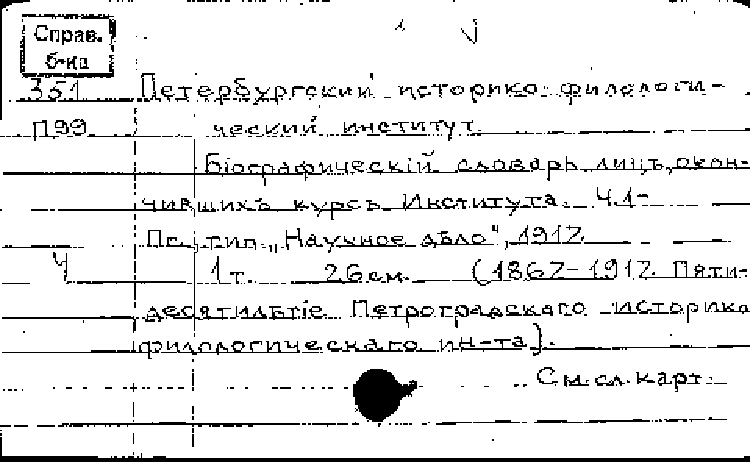 Справ.
б-ка
351 Петербургский историко-филологи-
П99 ческий институт.
Біографическій словарь лицъ, окон-
чившихъ курсъ Института. Ч.1-
Пг., тип. „Научное дѣло", 1917.
Ч 1 т. 26 см. (1867-1917. Пяти-
десятилѣтіе Петроградскаго историко
филологическаго ин-та).
См. сл. карт.